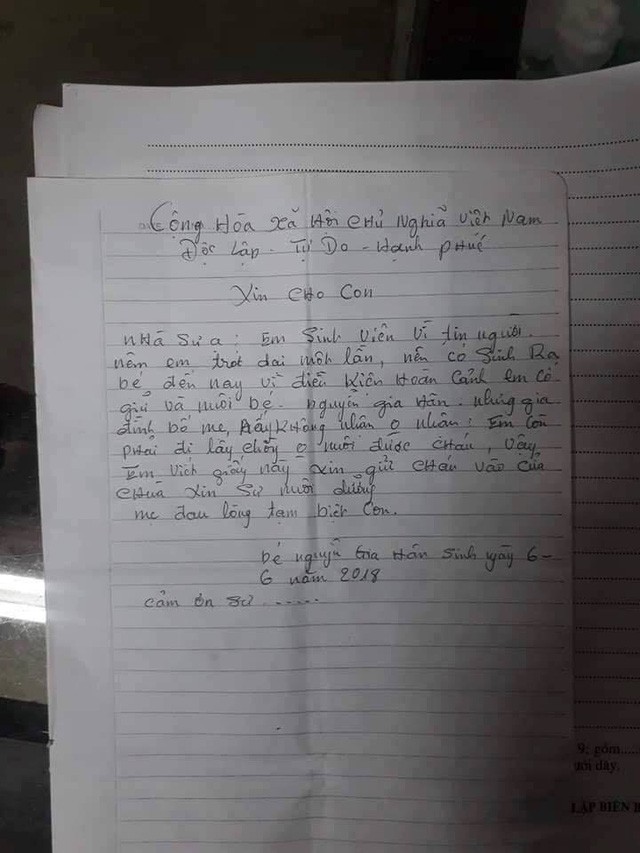 Cộng Hòa Xã Hội Chủ Nghĩa Việt Nam
Độc Lập - Tự Do - Hạnh Phúc
Xin Cho Con
Nhà Sư ạ: Em Sinh Viên Vì tin người.
nêm em trót dại một lần, nên có Sinh Ra
bé đến nay vì điều Kiên Hoàn Cảnh em cố
giữ và nuôi bé. nguyễn gia Hân. nhưng gia
đình bố mẹ, Không nhân o nhân: Em Còn
phải đi lấy chồng o nuôi được cháu, vậy
Em viết giấy này xin gửi cháu vào cửa
chùa Xin Sư nuôi dưỡng
mẹ đau lòng tạm biệt Con.
bé nguyễn Gia Hân Sinh ngày 6-
6 năm 2018
cảm ơn sư ......
9; gồm.....
dưới đây.
LẬP BIÊN B